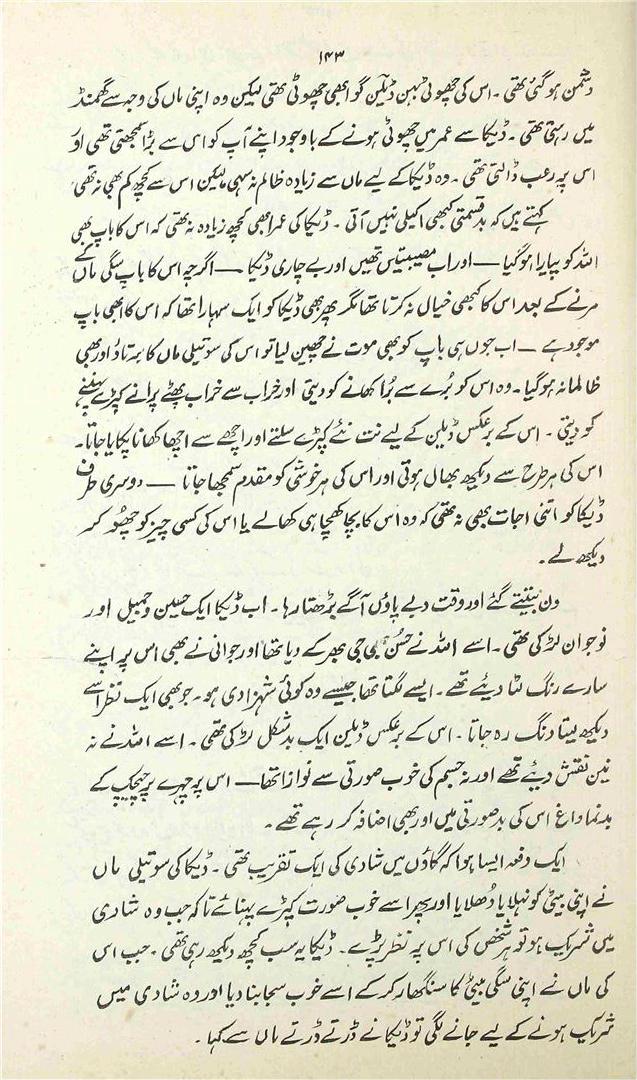 ۱۴۳
دشمن ہو گئی تھی ۔ اس کی چھوٹی بہن ڈبلین گو ابھی چھوٹی تھی لیکن وہ اپنی ماں کی وجہ سے گھمنڈ
میں رہتی تھی ۔ ڈبیکا سے عمر میں چھوٹی ہونے کے باوجود اپنے آپ کو اس سے بڑا سمجھتی تھی اور
اس پہ رعب ڈالتی تھی ۔ وہ ڈبیکا کے لیے ماں سے زیادہ ظالم نہ سہی لیکن اس سے کچھ کم بھی نہ تھی
کہتے ہیں کہ بدقسمتی کبھی اکیلی نہیں آتی ۔ ڈبیکا کی عمر ابھی کچھ زیادہ نہ تھی کہ اس کا باپ بھی
اللہ کو پیارا ہو گیا — اور اب مصیبتیں تھیں اور بے چاری ڈبیکا — اگرچہ اس کا باپ سگی ماں کے
مرنے کے بعد اس کا کبھی خیال نہ کرتا تھا مگر پھر بھی ڈبیکا کو ایک سہارا تھا کہ اس کا ابھی باپ
موجود ہے — اب جوں ہی باپ کو بھی موت نے چھین لیا تو اس کی سوتیلی ماں کا برتاؤ اور بھی
ظالمانہ ہو گیا ۔ وہ اس کو بُرے سے بُرا کھانے کو دیتی اور خراب سے خراب پھٹے پرانے کپڑے پہننے
کو دیتی ۔ اس کے برعکس ڈبلین کے لیے نت نئے کپڑے سلتے اور اچھے سے اچھا کھانا پکایا جاتا۔
اس کی ہر طرح سے دیکھ بھال ہوتی اور اس کی ہر خوشی کو مقدم سمجھا جاتا — دوسری طرف
ڈبیکا کو اتنی اجات بھی نہ تھی کہ وہ اس کا بچا کھچا ہی کھا لے یا اس کی کسی چیز کو چھو کر
دیکھ لے ۔
دن بیتتے گئے اور وقت دبے پاؤں آگے بڑھتا رہا ۔ اب ڈبیکا ایک حسین و جمیل اور
نوجوان لڑکی تھی ۔ اسے اللہ نے حسن بھی جی بھر کے دیا تھا اور جوانی نے بھی اس پر اپنے
سارے رنگ لٹا دیئے تھے ۔ ایسے لگتا تھا جیسے وہ کوئی شہزادی ہو ۔ جو بھی ایک نظر اسے
دیکھ لیتا دنگ رہ جاتا ۔ اس کے برعکس ڈبلین ایک بدشکل لڑکی تھی ۔ اسے اللہ نے نہ
نین نقش دیئے تھے اور نہ جسم کی خوب صورتی سے نوازا تھا — اس پر چہرے پر چیچک کے
بدنما داغ اس کی بدصورتی میں اور بھی اضافہ کر رہے تھے ۔
ایک دفعہ ایسا ہوا کہ گاؤں میں شادی کی ایک تقریب تھی ۔ ڈبیکا کی سوتیلی ماں
نے اپنی بیٹی کو نہلایا دُھلایا اور پھر اسے خوب صورت کپڑے پہنائے تاکہ جب وہ شادی
میں شریک ہو تو ہر شخص کی اس پہ نظر پڑے ۔ ڈبیکا یہ سب کچھ دیکھ رہی تھی ۔ جب اس
کی ماں نے اپنی سگی بیٹی کا سنگھار کر کے اسے خوب سجا بنا دیا اور وہ شادی میں
شریک ہونے کے لیے جانے لگی تو ڈبیکا نے ڈرتے ڈرتے ماں سے کہا ۔